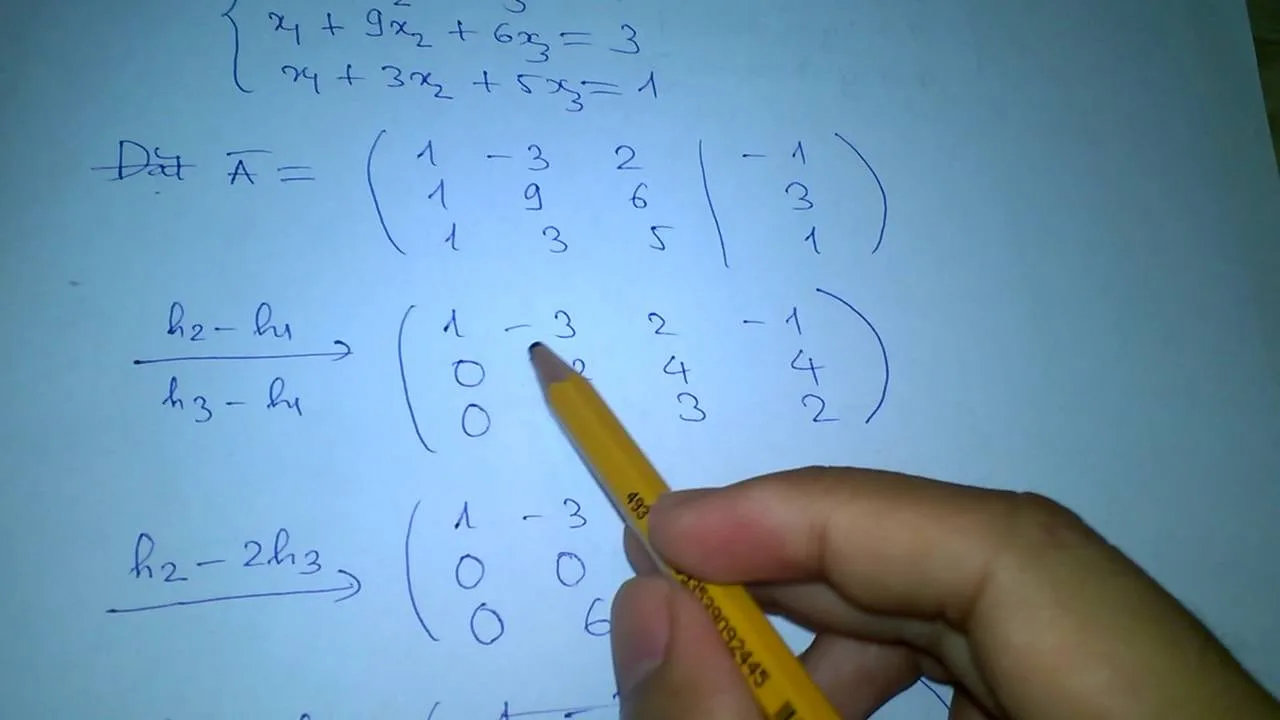 x₁ + 9x₂ + 6x₃ = 3
x₁ + 3x₂ + 5x₃ = 1
Đặt A̅ = ( 1 -3 2 | -1 )
1 9 6 | 3
1 3 5 | 1
h₂ - h₁
h₃ - h₁
1 -3 2 -1
0 2 4 4
0 3 2
h₂ - 2h₃
1 -3
0 0
0 6
493
3539092445